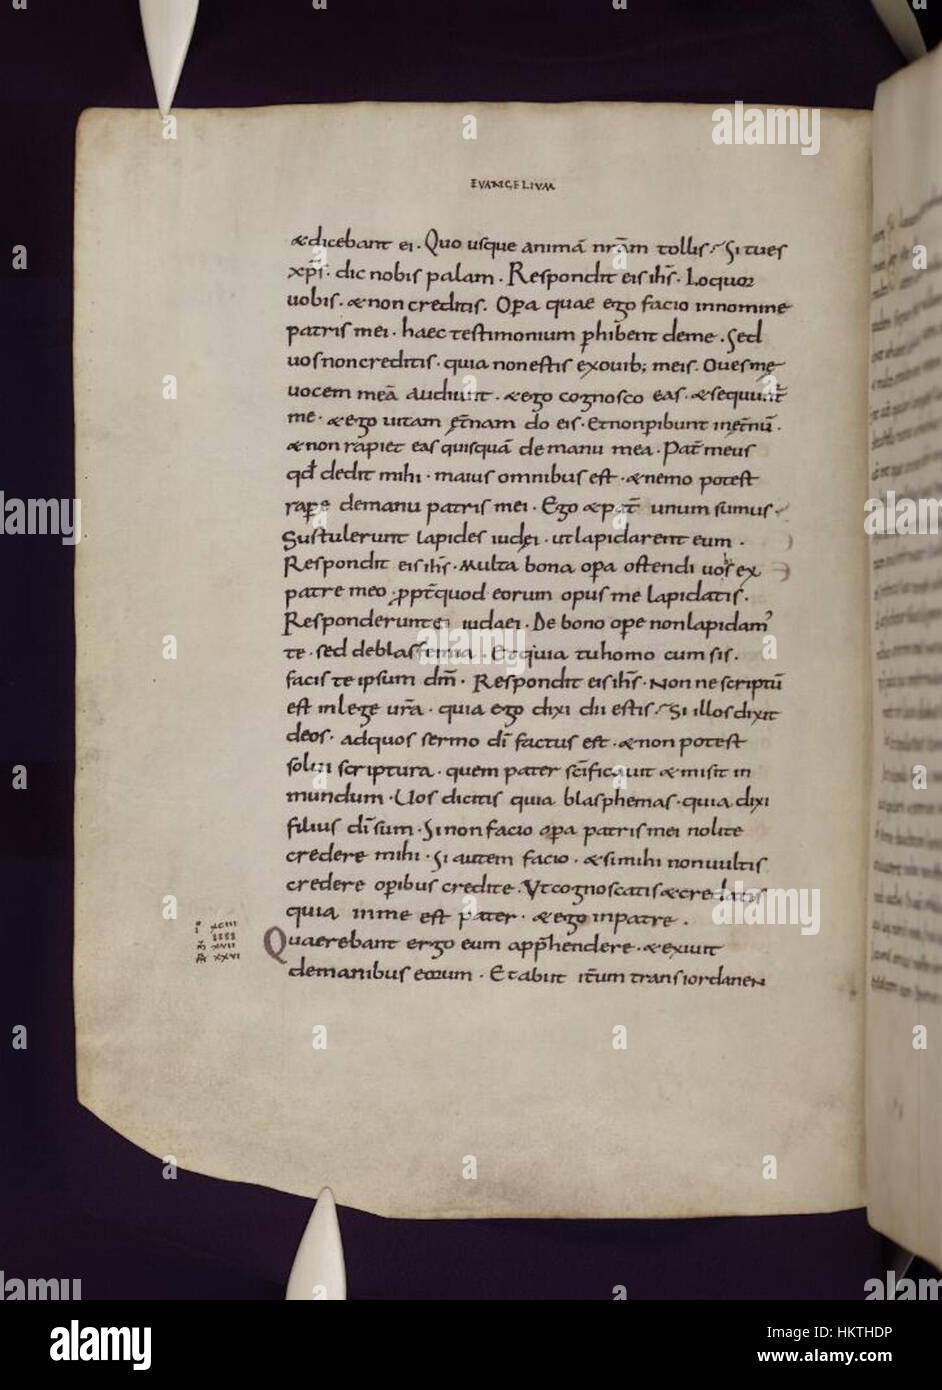 EVANGELIVM
&dicebant ei · Quo usque animā nr̄am tollis · Si tu es
xp̄s · dic nobis palam · Respondit eis ih̄s · Loquor
uobis · & non creditis · Op̄a quae ego facio in nomine
patris mei · haec testimonium p̄hibent de me · Sed
uos non creditis · quia non estis ex ouib; meis · Oues meę
uocem meā audiunt · & ego cognosco eas · & sequunt̄
me · & ego uitam et̄nam do eis · Et non peribunt in et̄nū ·
& non rapiet eas quisquā de manu mea · Pat̄ meus
qd̄ dedit mihi · maius omnibus est · & nemo potest
rape̅ de manu patris mei · Ego & pat̄ unum sumus ·
Sustulerunt lapides iudei · ut lapidarent eum ·
Respondit eis ih̄s · Multa bona op̄a ostendi uobis ex
patre meo · ꝓpt̄ quod eorum opus me lapidatis ·
Responderunt ei iudaei · De bono op̄e non lapidam᾽
te · sed de blasfemia · Et quia tu homo cum sis ·
facis te ipsum dm̄ · Respondit eis ih̄s · Non ne scriptū
est in lege ur̄a · quia ego dixi dii estis · Si illos dixit
deos · ad quos sermo dī factus est · & non potest
solui scriptura · quem pater scīficauit & misit in
mundum · Uos dicitis quia blasphemas · quia dixi
filius dī sum · Si non facio op̄a patris mei nolite
credere mihi · Si autem facio · & si mihi non uultis
credere op̄ibus credite · Ut cognoscatis & credatis
quia in me est pater · & ego in patre ·
Quaerebant ergo eum app̄hendere · & exiuit
de manibus eorum · Et abiit it̄um trans iordanen
xciii
iiii
m̄ xvii
xxvi
alamy
Image ID: HKTHDP
www.alamy.com